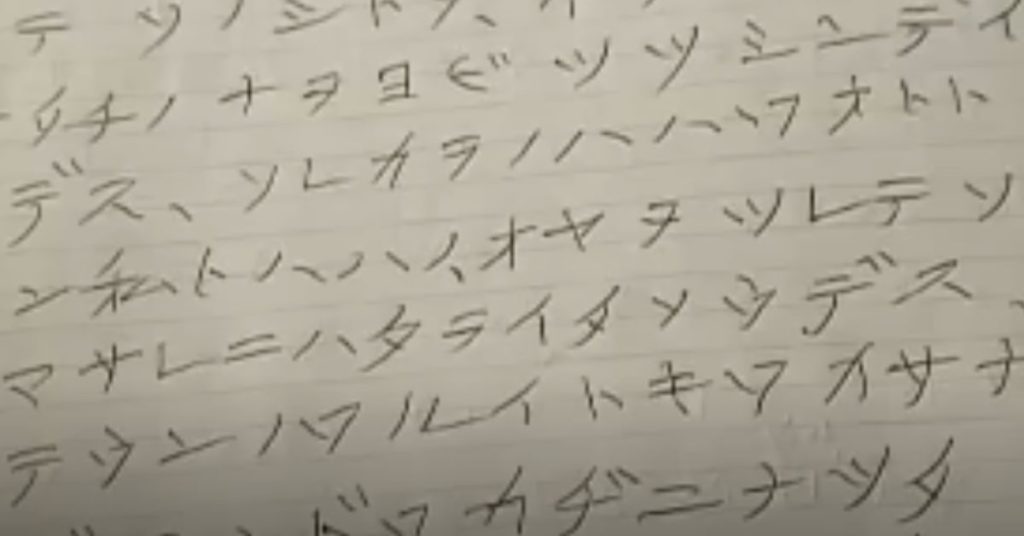 テツノシトヲ、イ
タチノナヲヨビツツシンデイ
デス、ソレカラノハハワオトト
ン私トハハハ、オヤヲツレテソ
マサレニハタライタソウデス、
テウンハワルイトキワオサナ
ドワカヂニナツタ